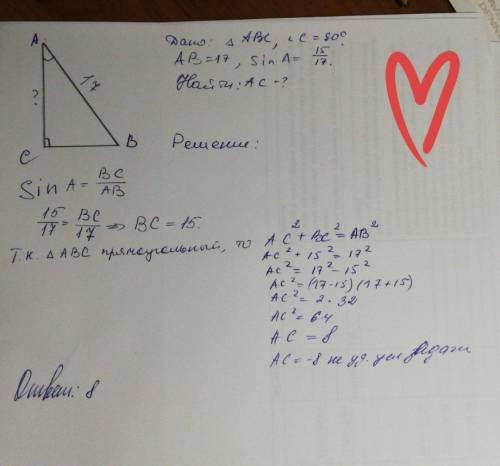 A
17
?
C
B
Дано: △ ABC, ∠C = 90°
AB = 17, sin A = 15/17.
Найти: AC - ?
Решение:
Sin A = BC/AB
15/17 = BC/17 => BC = 15.
Т.к. △ ABC прямоугольный, то
AC² + BC² = AB²
AC² + 15² = 17²
AC² = 17² - 15²
AC² = (17-15) (17+15)
AC² = 2 · 32
AC² = 64
AC = 8
AC = -8 не уд. усл задачи
Ответ: 8